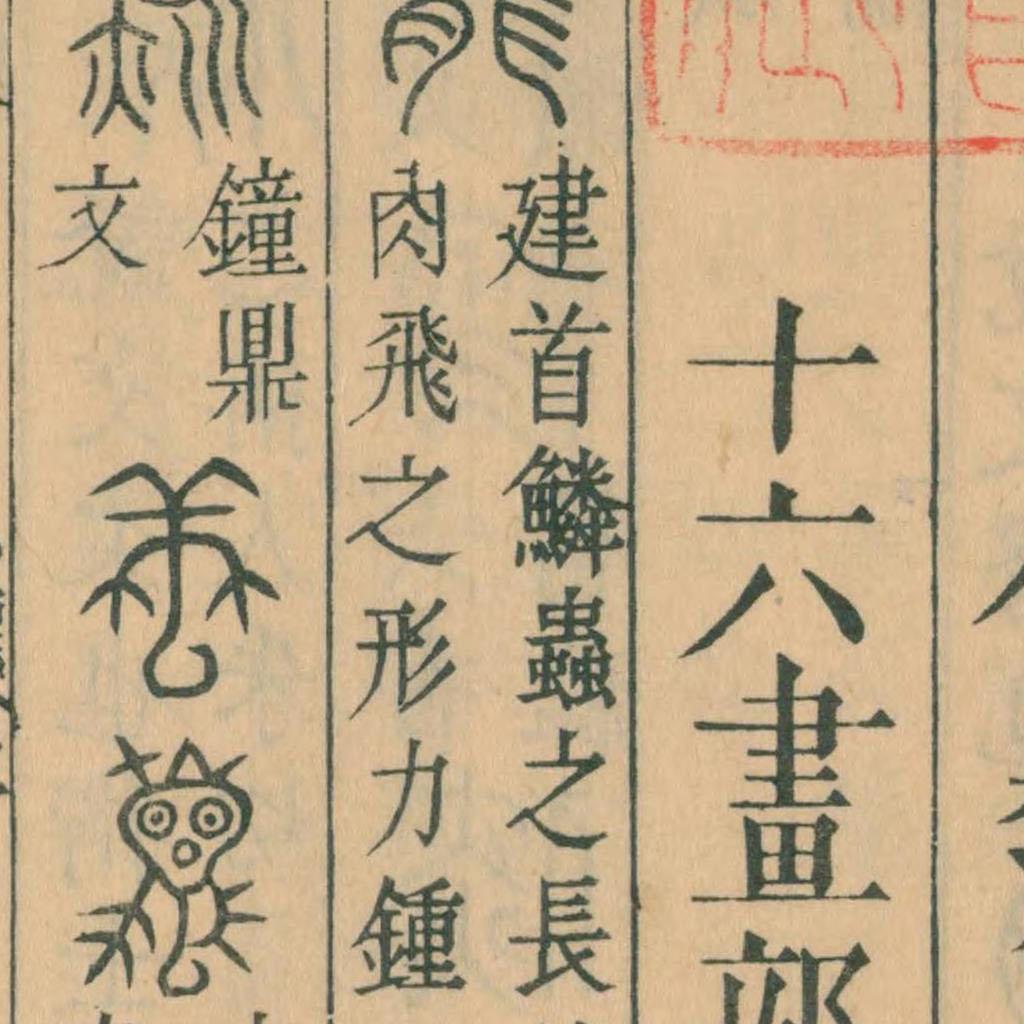 十六畫部
建首鱗蟲之長
肉飛之形力鍾
鐘鼎
文